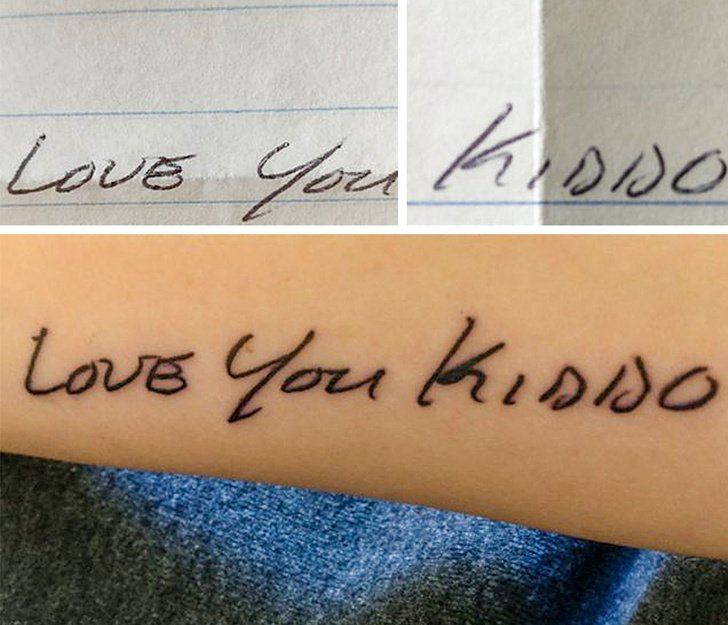 Love You
Kiddo
Love You Kiddo